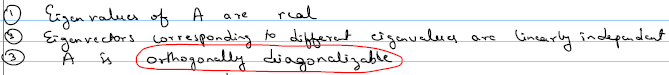 ① Eigenvalues of A are real
② Eigenvectors corresponding to different eigenvalues are linearly independent
③ A is orthogonally diagonalizable